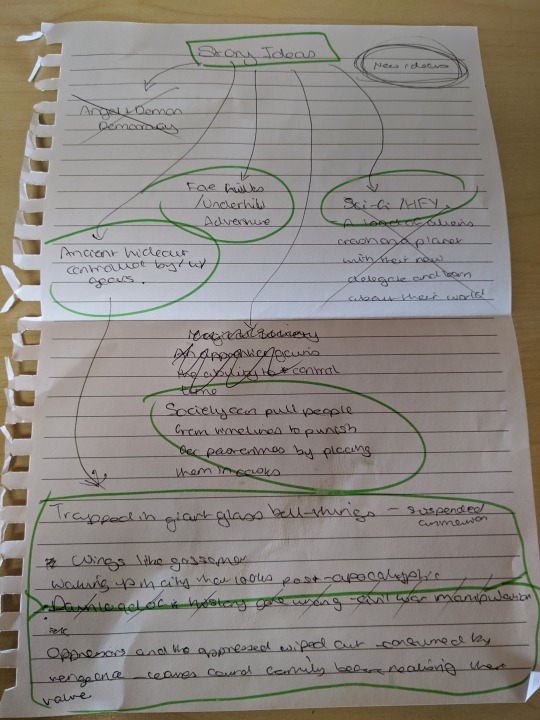 Story Ideas
New ideas
Angel + Demon
Democracy
Fae hills
/Underhill
Adventure
Sci-fi /HFY.
A band of aliens
crash on a planet
with their new
delegate and learn
about their world
Ancient hideout
controlled by
gears.
Magical Society
An apprentice gains
the ability to control
time
Society can pull people
from timelines to punish
for past crimes by placing
them in books
Trapped in giant glass bell-things - suspended
animation
* Wings like gossamer
Waking up in city that looks post-apocalyptic
history gone wrong - civil war manipulation
Oppressors and the oppressed wiped out consumed by
vengeance - leaves council family before realising their
value